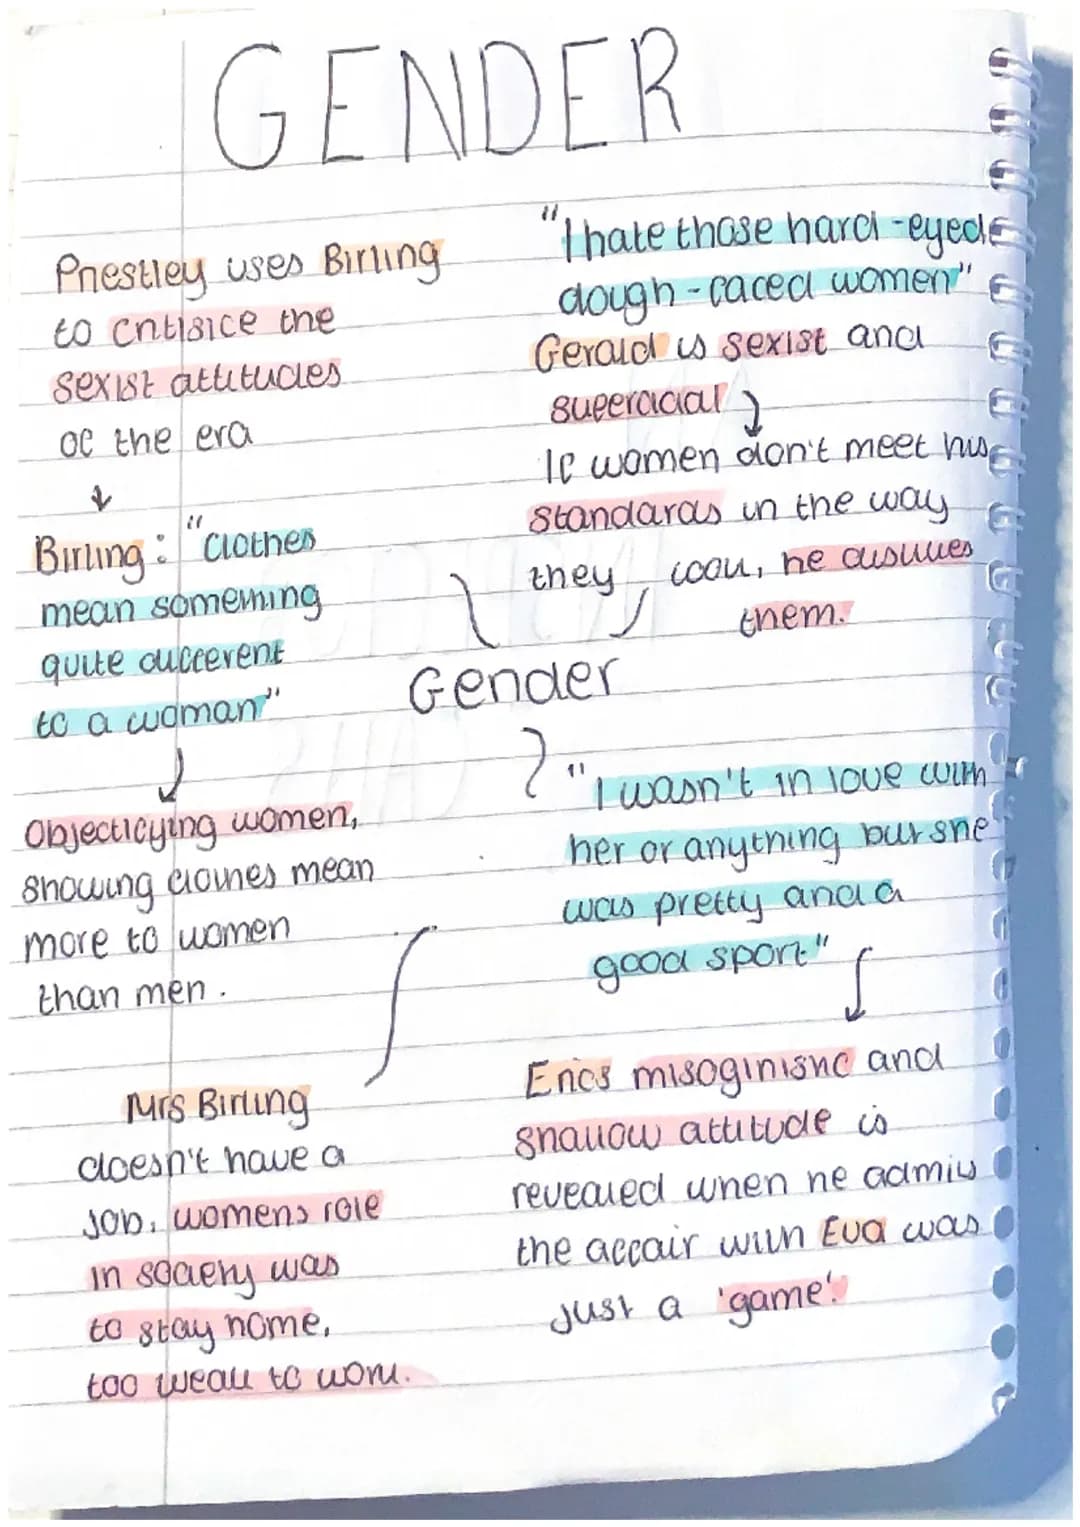 GENDER
Priestley uses Birling
to critisice the
sexist attitudes
of the era
Birling: "Clothes
mean something
quite different
to a woman"
Objectifying women,
showing clothes mean
more to women
than men.
Mrs Birling
doesn't have a
job, womens role
in society was
to stay home,
too weak to work.
"I hate those hard-eyed
dough-faced women"
Gerald is sexist and
superficial
If women don't meet his
standards in the way
they look, he dislikes
them.
Gender
"I wasn't in love with
her or anything but she
was pretty and a
good sport"
Erics misoginistic and
shallow attitude is
revealed when he admits
the affair with Eva was
just a 'game'.